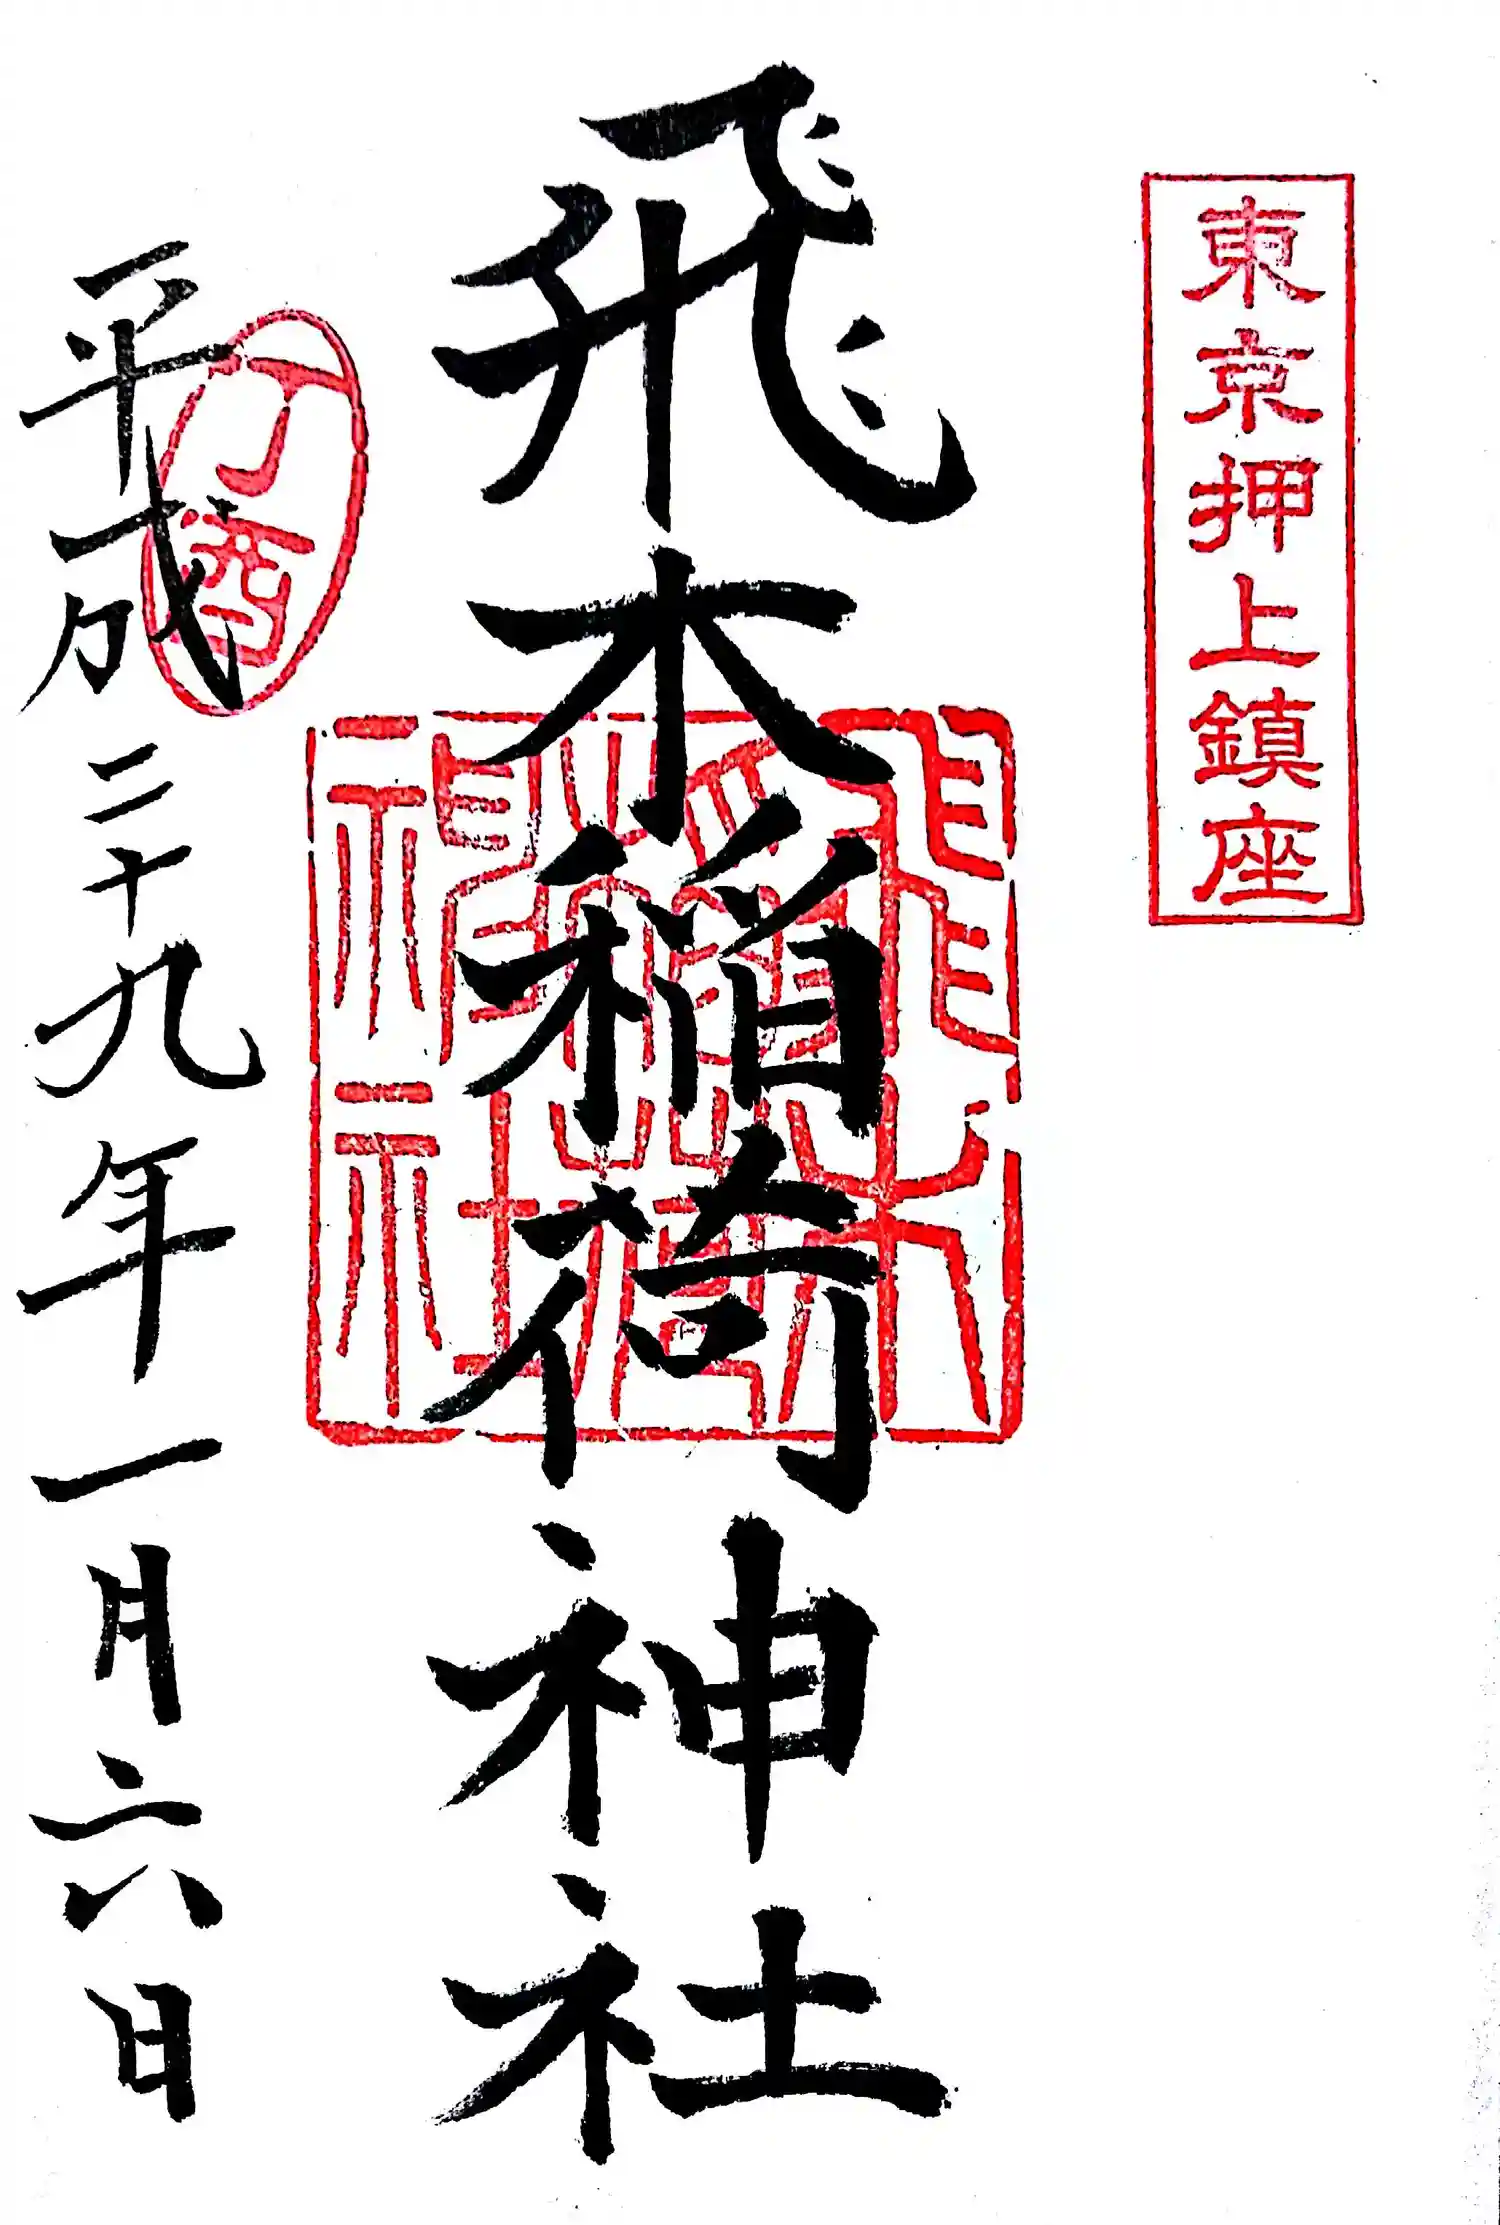 東京押上鎮座
飛木稲荷神社
飛木
稲荷
神社
丁酉
平成二十九年一月六日